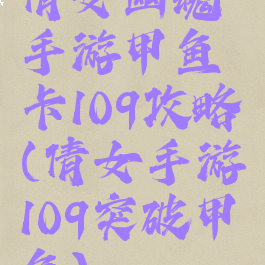 倩女幽魂
手游甲鱼
卡109攻略
(倩女手游
109突破甲
鱼)